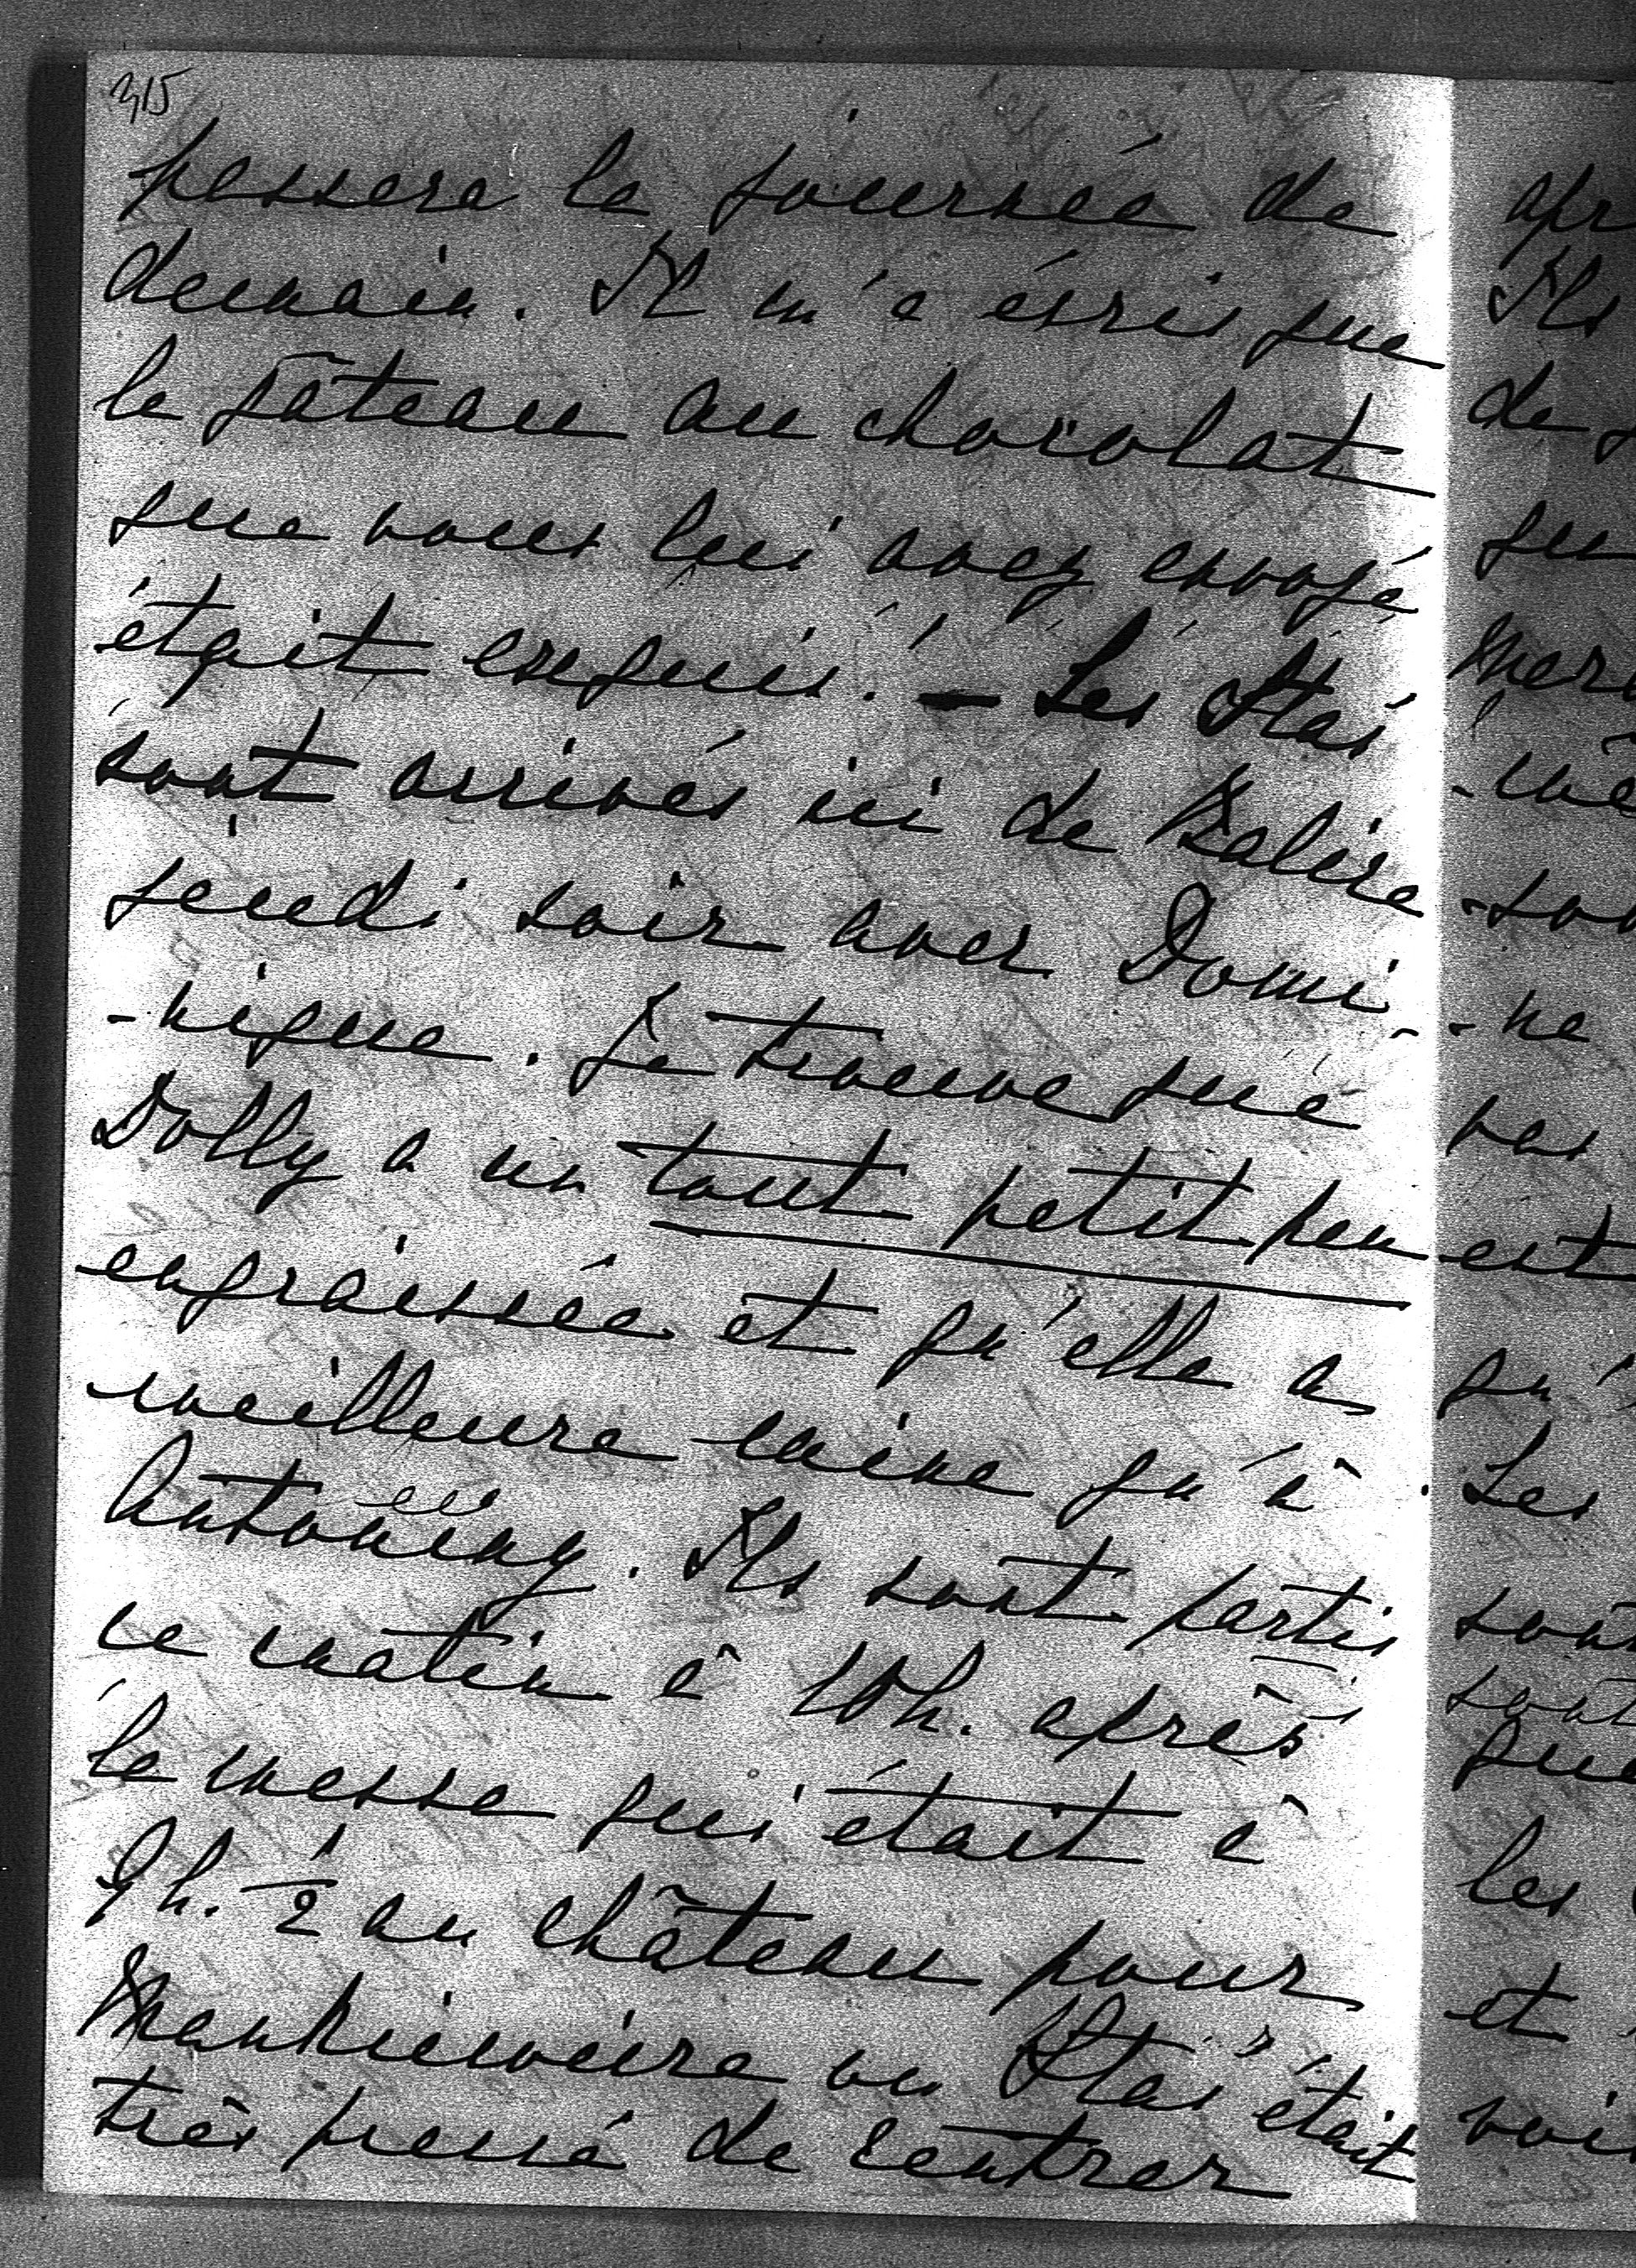 315
passera la journée de
demain. Il m'a écrit que
le gâteau au chocolat
que vous lui avez envoyé
était exquis. — Les Staś
sont arrivés ici de
jeudi soir avec Domi-
-nique. Je trouve que
Dolly a un tout petit peu
engraissée et qu'elle a
meilleure mine qu'à
Antoniny. Ils sont partis
ce matin à 10h. après
la messe qui était à
9h. ½ au château pour
Mankiewicze où Staś était
très pressé de rentrer
apr
Ils
de
que
-mê
-son
-ne
pas
est
qu'
Les
sont
sont
que
les
et
voir